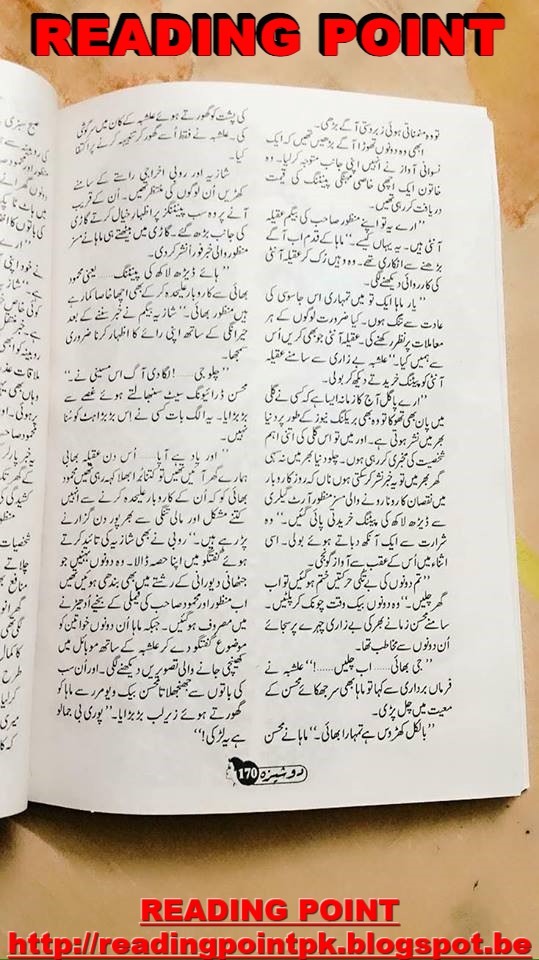 READING POINT
تو وہ منمناتی ہوئی زبردستی آگے بڑھی۔
ابھی وہ دونوں تھوڑا آگے بڑھیں تھیں کہ ایک
نسوانی آواز نے انہیں اپنی جانب متوجہ کرلیا۔ وہ
خاتون ایک اچھی خاصی مہنگی پینٹنگ کی قیمت
دریافت کر رہی تھیں۔
’’ارے یہ تو اپنے منظور صاحب کی بیگم عقیلہ
آنٹی ہیں۔ یہ یہاں کیسے۔‘‘ ماہا کے قدم اب آگے
بڑھنے سے انکاری تھے۔ وہ وہیں رُک کر عقیلہ آنٹی
کی کارروائی دیکھنے لگی۔
’’یار ماہا ایک تو میں تمہاری اس جاسوسی کی
عادت سے تنگ ہوں۔ کیا ضرورت لوگوں کے ہر
معاملات پر نظر رکھنے کی۔ عقیلہ آنٹی جو بھی کریں اُس
سے ہمیں کیا۔‘‘ علشبہ بے زاری سے سامنے عقیلہ
آنٹی کو پینٹنگ خریدتے دیکھ کر بولی۔
’’ارے پاگل آج کا زمانہ ایسا ہے کہ کسی نے گلی
میں پان بھی تھوکا تو وہ بھی بریکنگ نیوز کے طور پر دنیا
بھر میں نشر ہوتی ہے۔ اور میں تو اس گلی کی اتنی اہم
شخصیت کی مخبری کر رہی ہوں۔ چلو دنیا بھر میں نہ سہی
گھر بھر میں تو یہ خبر نشر کرسکتی ہوں ناں کہ روز کاروبار
میں نقصان کا رونا رونے والی مسز منظور آرٹ گیلری
سے ڈیڑھ لاکھ کی پینٹنگ خریدتی پائی گئیں۔‘‘ وہ
شرارت سے ایک آنکھ دباتے ہوئے بولی۔ اسی
اثناء میں اُس کے عقب سے آواز گونجی۔
’’تم دونوں کی بے تکی حرکتیں ختم ہوگئیں تو اب
گھر چلیں۔‘‘ وہ دونوں بیک وقت چونک کر پلٹیں۔
سامنے محسن زمانے بھر کی بے زاری چہرے پر سجائے
اُن دونوں سے مخاطب تھا۔
’’جی بھائی...... اب چلیں......!‘‘ علشبہ نے
فرماں برداری سے کہا تو ماہا بھی سر جھکائے محسن کے
معیت میں چل پڑی۔
’’بالکل کھڑوس ہے تمہارا بھائی۔‘‘ ماہا نے محسن
کی پشت کو گھورتے ہوئے علشبہ کے کان میں سرگوشی
کی۔ علشبہ نے فقط اُسے گھور کر تنبیہہ کرنے پر اکتفا
کیا۔
شازیہ اور روبی اخراجی راستے کے سامنے
کھڑیں اُن لوگوں کی منتظر تھیں۔ اُن کے قریب
آنے پر وہ سب پینٹنگز پر اظہار خیال کرتے گاڑی
کی جانب بڑھ گئے۔ گاڑی میں بیٹھتے ہی ماہا نے مسز
منظور والی خبر فوراً نشر کردی۔
’’ہائے ڈیڑھ لاکھ کی پینٹنگ...... یعنی محمود
بھائی سے کاروبار علیحدہ کرکے بھی اچھا خاصا کما رہے
ہیں منظور بھائی۔‘‘ شازیہ بیگم نے خبر سننے کے بعد
حیرانگی کے ساتھ اپنی رائے کا اظہار کرنا ضروری
سمجھا۔
’’چلو جی......! لگا دی آگ اس میسنی نے۔‘‘
محسن ڈرائیونگ سیٹ سنبھالتے ہوئے غصے سے
بڑبڑایا۔ یہ الگ بات کسی نے اس بڑبڑاہٹ کو سُنا
نہیں۔
’’اور یاد ہے آپا...... اُس دن عقیلہ بھابی
ہمارے گھر آئیں تھیں تو کتنا برا بھلا کہہ رہی تھیں محمود
بھائی کو کہ اُن کے کاروبار علیحدہ کرنے سے اُنہیں
کتنے مشکل اور مالی تنگی سے بھرپور دن گزارنے
پڑ رہے ہیں۔‘‘ روبی نے بھی شازیہ کی تائید کرتے
ہوئے گفتگو میں اپنا حصہ ڈالا۔ وہ دونوں بہنیں جو
جٹھانی دیورانی کے رشتے میں بھی بندھی ہوئیں تھیں
اب منظور اور محمود صاحب کی فیملی کے بخئیے اُدھیڑنے
میں مصروف ہوگئیں۔ جبکہ ماہا اُن دونوں خواتین کو
موضوع گفتگو دے کر علشبہ کے ساتھ موبائل میں
کھینچی جانے والی تصویریں دیکھنے لگی۔ اور اُن سب
کی باتوں سے جھنجھلاتا محسن بیک ویو مرر سے ماہا کو
گھورتے ہوئے زیرِلب بڑبڑایا۔ ’’پوری بی جمالو
ہے یہ لڑکی!‘‘
دوشیزہ 170
READING POINT
http://readingpointpk.blogspot.be